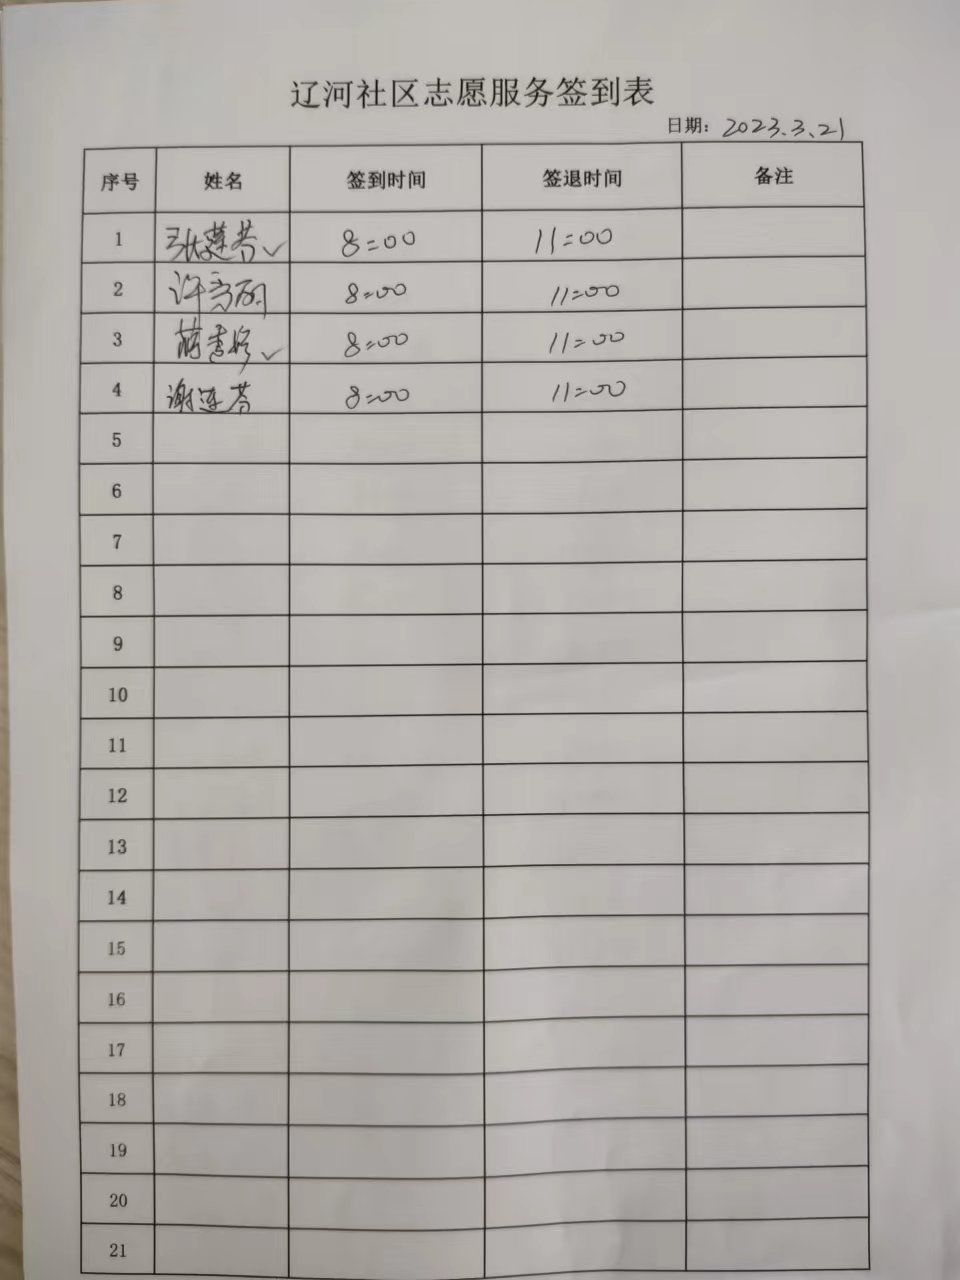 辽河社区志愿服务签到表
日期: 2023.3.21
序号 姓名 签到时间 签退时间 备注
1 张莲芬✓ 8:00 11:00
2 许 8:00 11:00
3 ✓ 8:00 11:00
4 谢莲芬 8:00 11:00
5
6
7
8
9
10
11
12
13
14
15
16
17
18
19
20
21